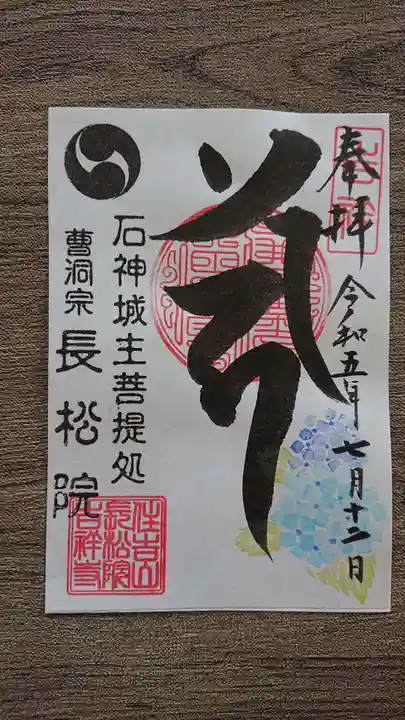 奉拝
令和五年七月十二日
石神城主菩提処
曹洞宗 長松院
住吉山
長松院
吉祥寺